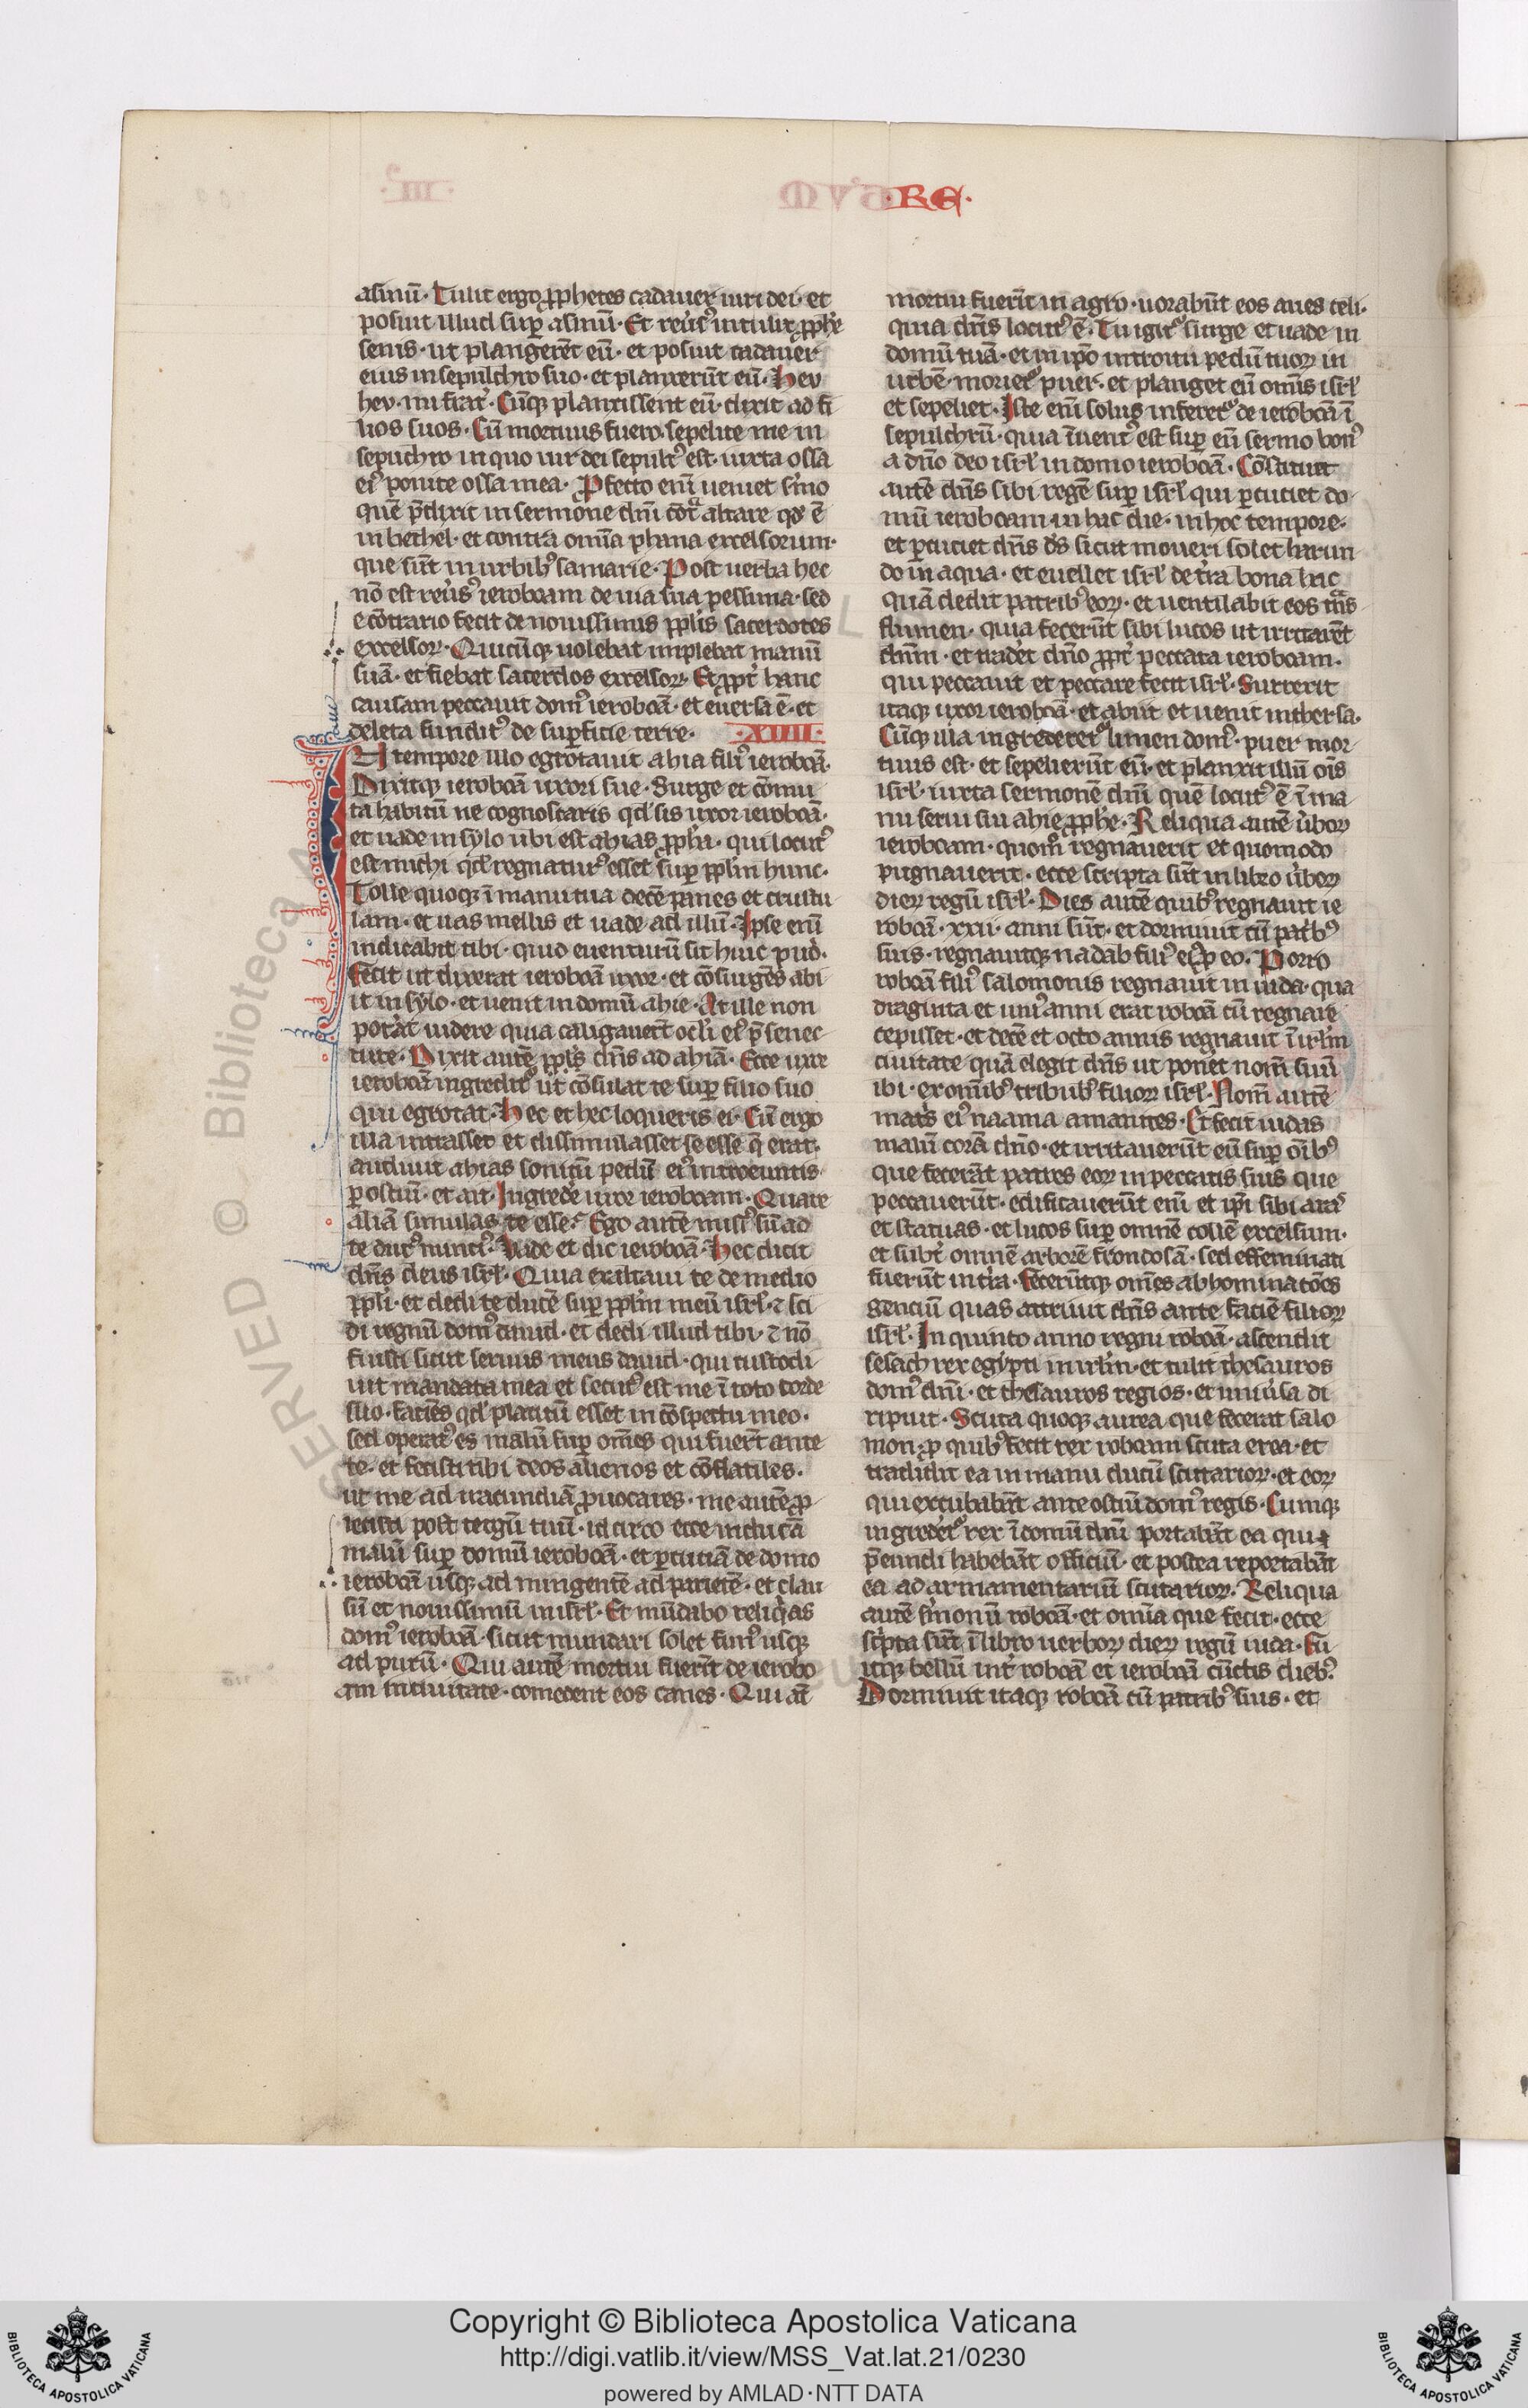 ·RE·
asinū· Tulit ergo ꝓphetes cadauer uiri dei· et
posuit illud suꝑ asinū· Et reuˀsꝰ intulit ꝓphˀe
senis· ut plangerēt eū· et posuit cadauer
eius in sepulchro suo· et planxerūt eū· Hev
hev· mi frat̾· Cūqꝫ planxissent eū· dixit ad fi
lios suos· Cū mortuus fuero, sepelite me in
sepuchro in quo uir dei sepultꝰ est· iuxta ossa
eiꝰ ponite ossa mea· Ꝓfecto enī ueniet sˀmo
quē p̄dixit in sermone dn̄i cōtᵃ altare qđ ē
in bethel· et contra om̄ia phana excelsorum·
que sūt in urbibꝰ samarie· Post uerba hec
nō est reuˀsꝰ ieroboam de uia sua pessima· sed
e cōtrario fecit de nouissimis ppl̄is sacerdotes
excelsoꝝ· Quicūqꝫ uolebat implebat manū
suā· et fiebat sacerdos excelsoꝝ· Et ꝓpt̾ hanc
causam peccauit domꝰ ieroboā· et euersa ē· et
deleta funditꝰ de suꝑficie terre· ·XIIII·
IN tempore illo egrotauit abia filiꝰ ieroboā·
Dixitqꝫ ieroboā uxori sue· Surge et cōmu
ta habitū ne cognoscaris qđ sis uxor ieroboā·
et uade in sylo ubi est ahias ꝓphˀa· qui locutꝰ
est michi qđ regnaturꝰ esset suꝑ ppl̄m hunc·
Tolle quoqꝫ ī manu tua decē panes et crustu
lam· et uas mellis et uade ad illū· Ipse enī
indicabit tibi· quid euenturū sit huic puˀo·
Fecit ut dixerat ieroboā uxor· et cōsurgēs abi
it in sylo· et uenit in domū ahie· At ille non
potˀat uidere quia caligauer̄t ocl̄i eiꝰ p̄ senec
tute· Dixit autē ppl̄s dn̄s ad ahiā· Ecce uxor
ieroboā ingreditꝰ ut cōsulat te suꝑ filio suo
qui egrotat· Hec et hec loqueris ei· Cū ergo
illa intrasset et dissimulasset se esse q̄ erat·
audiuit ahias sonitū pedū eiꝰ introeuntis·
ꝑ ostiū· et ait· Ingredˀe uxor ieroboam· Quare
aliā simulas te esse? Ego autē missꝰ sū ad
te durꝰ nuntiꝰ· Vade et dic ieroboā· Hec dicit
dn̄s deus isrl̄· Quia exaltaui te de medio
ppl̄i· et dedi te ducē suꝑ ppl̄m meū isrl̄· ⁊ sci
di regnū domꝰ dauid· et dedi illud tibi· ⁊ nō
fuisti sicut seruus meus dauid· qui custodi
uit mandata mea et secutꝰ est me ī toto corde
suo· faciēs qđ placitū esset in cōspectu meo·
sed operatꝰ es malū suꝑ om̄es qui fuer̄t ante
te· et fecisti tibi deos alienos et cōflatiles·
ut me ad iracundiā ꝓuocares· me autē ꝓ
iecisti post tergū tuū· idcirco ecce inducā
malū suꝑ domū ieroboā· et ꝑcutiā de domo
ieroboā usqꝫ ad mingentē ad parietē· et clau
sū et nouissimū in isrl̄· Et mūdabo reliqͥas
domꝰ ieroboā· sicut mundari solet fimꝰ usqꝫ
ad purū· Qui autē mortui fuerīt de ierobo
am in ciuitate· comedent eos canes· Qui aūt
mortui fuerīt in agro· uorabūt eos aues celi·
quia dn̄s locutꝰ ē· Tu igitꝰ surge et uade in
domū tuā· et in ip̄o introitu pedū tuoꝝ in
urbē· morietꝰ puer· et planget eū omīs isrl̄
et sepeliet· Iste enī solus inferetꝰ de ieroboā ī
sepulchrū· quia īuentꝰ est suꝑ eū sermo bonꝰ
a dn̄o deo isrl̄ in domo ieroboā· Cōstituit
autē dn̄s sibi regē suꝑ isrl̄ qui ꝑcutiet do
mū ieroboam in hac die· in hoc tempore·
et ꝑcutiet dn̄s dˀs sicut moueri solet harun
do in aqua· et euellet isrl̄ de tˀra bona hac
quā dedit patribꝰ eoꝝ· et uentilabit eos tᵃns
flumen· quia fecerūt sibi lucos ut irritarēt
dn̄m· et tradet dn̄o ꝓpt̾ peccata ieroboam·
qui peccauit et peccare fecit isrl̄· Surrexit
itaqꝫ uxor ieroboā· et abiit et uenit in thersa·
Cūqꝫ illa ingrederetꝰ limen domꝰ· puer mor
tuus est· et sepelierūt eū· et planxit illū oīs
isrl̄· iuxta sermonē dn̄i quē locutꝰ ē ī ma
nu serui sui ahie ꝓphe· Reliqua autē uˀboꝝ
ieroboam· quom̄ regnauerit et quomodo
pugnauerit· ecce scripta sūt in libro uˀboꝝ
dieꝝ regū isrl̄· Dies autē quibꝰ regnauit ie
roboā· xxii· anni sūt· et dormiuit cū pat̾bꝰ
suis· regnauitqꝫ nadab filiꝰ eiꝰ ꝓ eo· Porro
roboā filiꝰ salomonis regnauit in iuda· qua
draginta et uniꝰ anni erat roboā cū regnare
cepisset· et decē et octo annis regnauit ī irl̄m
ciuitate quā elegit dn̄s ut ponˀet nom̄ suū
ibi· ex om̄ibꝰ tribubꝰ filioꝝ isrl̄· Nom̄ autē
matˀs eiꝰ naama amanites· Et fecit iudas
malū corā dn̄o· et irritauerūt eū suꝑ oībꝰ
que fecerāt patres eoꝝ in peccatis suis que
peccauerūt· edificauerūt enī et ip̄i sibi arasˀ
et statuas· et lucos suꝑ omnē collē excelsum·
et subt̾ omnē arborē frondosā· sed effeminati
fuerūt in tˀra· fecerūtqꝫ om̄es abhominatōes
gentiū quas attriuit dn̄s ante faciē filioꝝ
isrl̄· In quinto anno regni roboā· ascendit
sesach rex egypti in irl̄m· et tulit thesauros
domꝰ dn̄i· et thesauros regios· et uniuˀsa di
ripuit· Scuta quoqꝫ aurea que fecerat salo
mon· ꝓ quibꝰ fecit rex roboam scuta erea· et
tradidit ea in manu ducū scutarioꝝ· et eoꝝ
qui excubabāt ante ostiū domꝰ regis· Cumqꝫ
ingredˀetꝰ rex ī domū dn̄i portabāt ea qui
p̄eundi habebāt officiū· et postea reportabāt
ea ad armamentariū scutarioꝝ· Reliqua
autē sˀmonū roboā· et om̄ia que fecit· ecce
scͥpta sūt ī libro uerboꝝ dieꝝ regū iuda· Fu
itqꝫ bellū int̾ roboā et ieroboā cūctis diebꝰ·
Dormiuit itaqꝫ roboā cū patribꝰ suis· et
SERVED © Biblioteca A
Copyright © Biblioteca Apostolica Vaticana
http://digi.vatlib.it/view/MSS_Vat.lat.21/0230
powered by AMLAD·NTT DATA
BIBLIOTECA APOSTOLICA VATICANA
BIBLIOTECA APOSTOLICA VATICANA